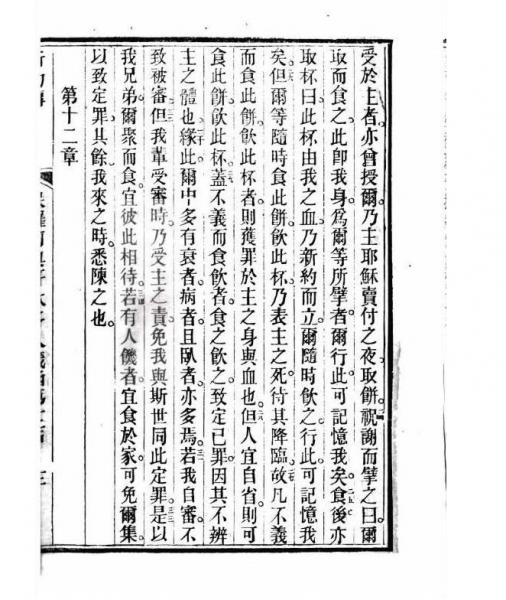 受於主者。亦曾授爾。乃主耶穌賣付之夜。取餅。祝謝而擘之曰。爾
取而食之。此卽我身。爲爾等所擘者。爾行此可記憶我矣。食後亦
取杯曰。此杯由我之血。乃新約而立。爾隨時飲之。行此可記憶我
矣。但爾等隨時食此餅。飲此杯。乃表主之死。待其降臨。故凡不義
而食此餅。飲此杯者。則獲罪於主之身與血也。但人宜自省。則可
食此餅。飲此杯。蓋不義而食飲者。食之飲之。致定己罪。因其不辨
主之體也。緣此爾中多有衰者。病者。且臥者亦多焉。若我自審。不
致被審。但我輩受審時。乃受主之責。免我與斯世同此定罪。是以
我兄弟。爾聚而食。宜彼此相待。若有人饑者。宜食於家。可免爾集。
以致定罪。其餘我來之時。悉陳之也。
第十二章